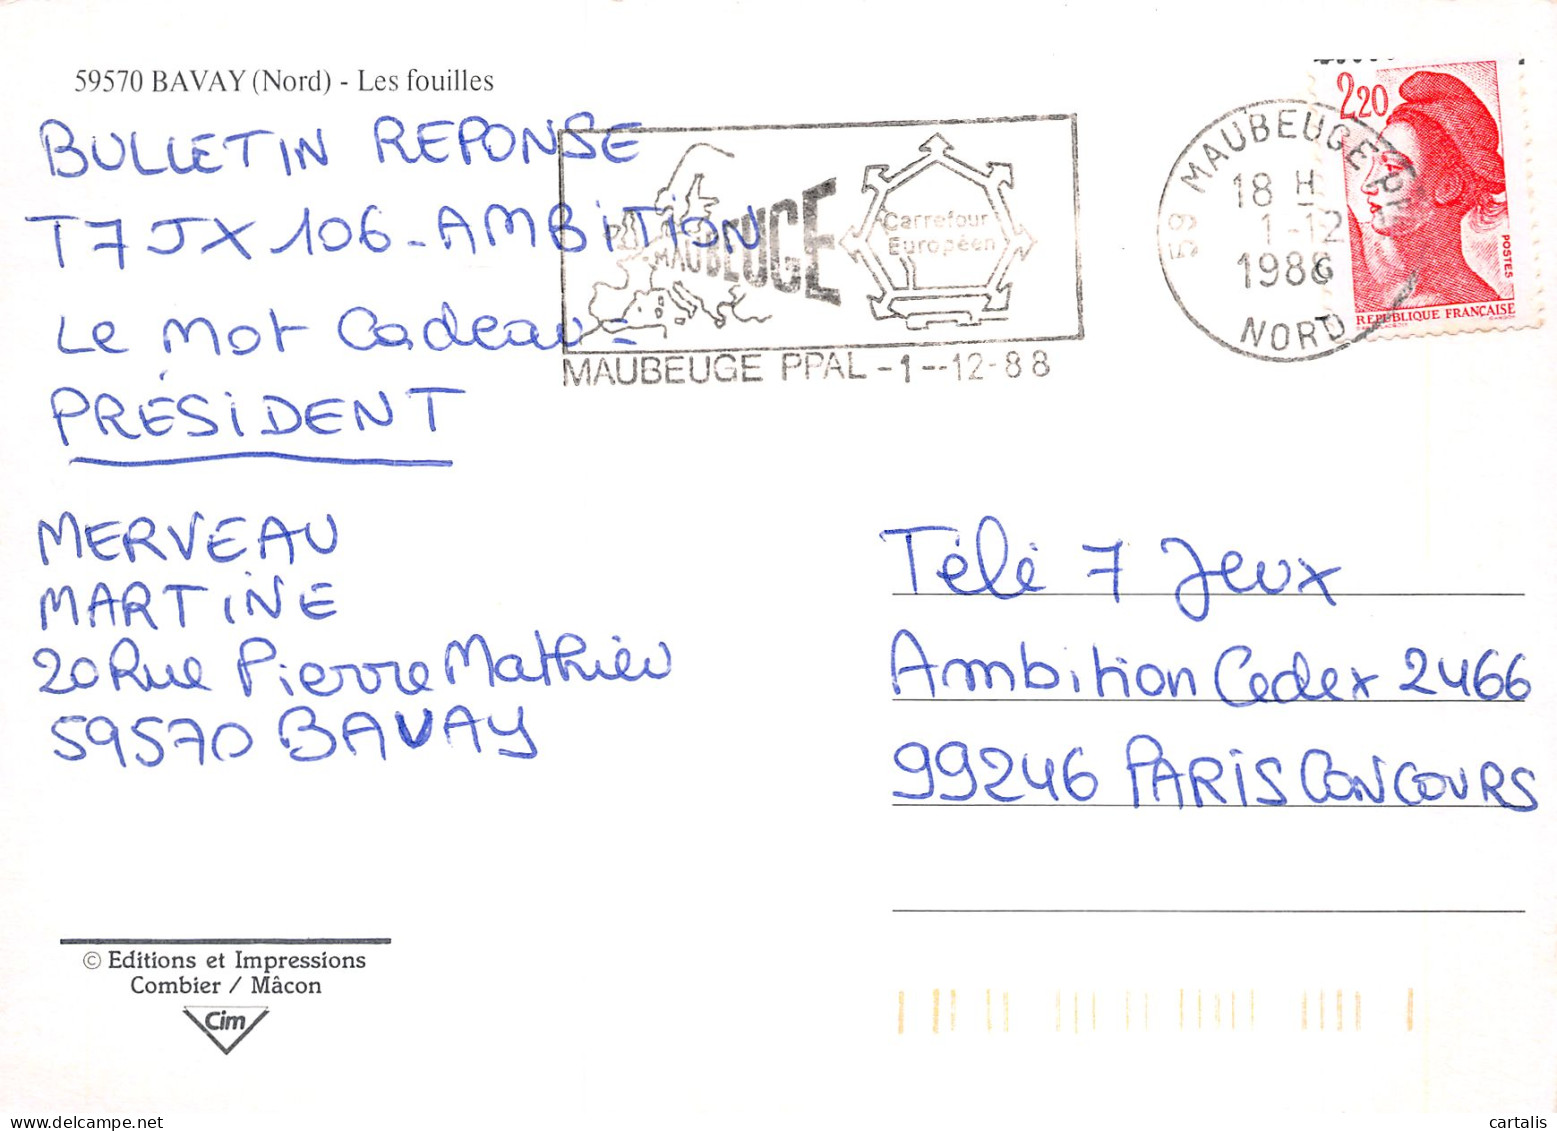 59570 BAVAY (Nord) - Les fouilles
BULLETIN REPONSE
T7JX 106 - AMBITION
Le Mot Cadeau =
PRÉSIDENT
MERVEAU
MARTINE
20 Rue Pierre Mathieu
59570 BAVAY
© Editions et Impressions
Combier / Mâcon
Cim
MAUBEUGE
Carrefour
Européen
MAUBEUGE PPAL -1--12-88
59 MAUBEUGE PPAL
18 H
1-12
1988
NORD
2,20
POSTES
REPUBLIQUE FRANÇAISE
Télé 7 Jeux
Ambition Cedex 2466
99246 PARIS CONCOURS
cartalis